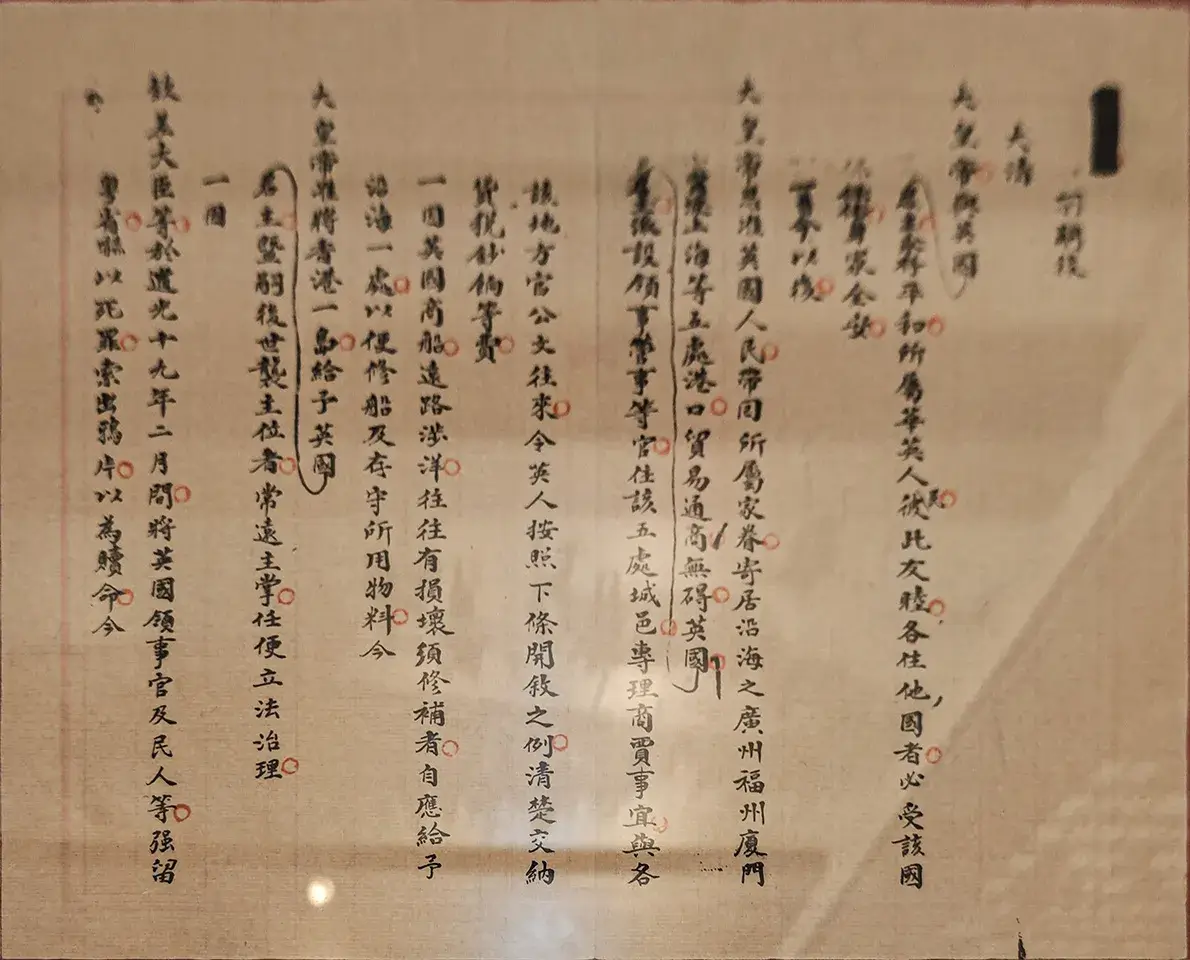 大清
大皇帝與英國
君主永存平和所屬華英人民彼此友睦各住他國者必受該國
保佑身家全安
一自今以後
大皇帝恩准英國人民帶同所屬家眷寄居沿海之廣州福州廈門
寧波上海等五處港口貿易通商無礙英國
君主派設領事管事等官住該五處城邑專理商賈事宜與各
該地方官公文往來令英人按照下條開敘之例清楚交納
貨稅鈔餉等費
一因英國商船遠路涉洋往往有損壞須修補者自應給予
沿海一處以便修船及存守所用物料今
大皇帝准將香港一島給予英國
君主暨嗣後世襲主位者常遠主掌任便立法治理
一因
欽差大臣等於道光十九年二月間將英國領事官及民人等强留
粤省嚇以死罪索出鴉片以為贖命今